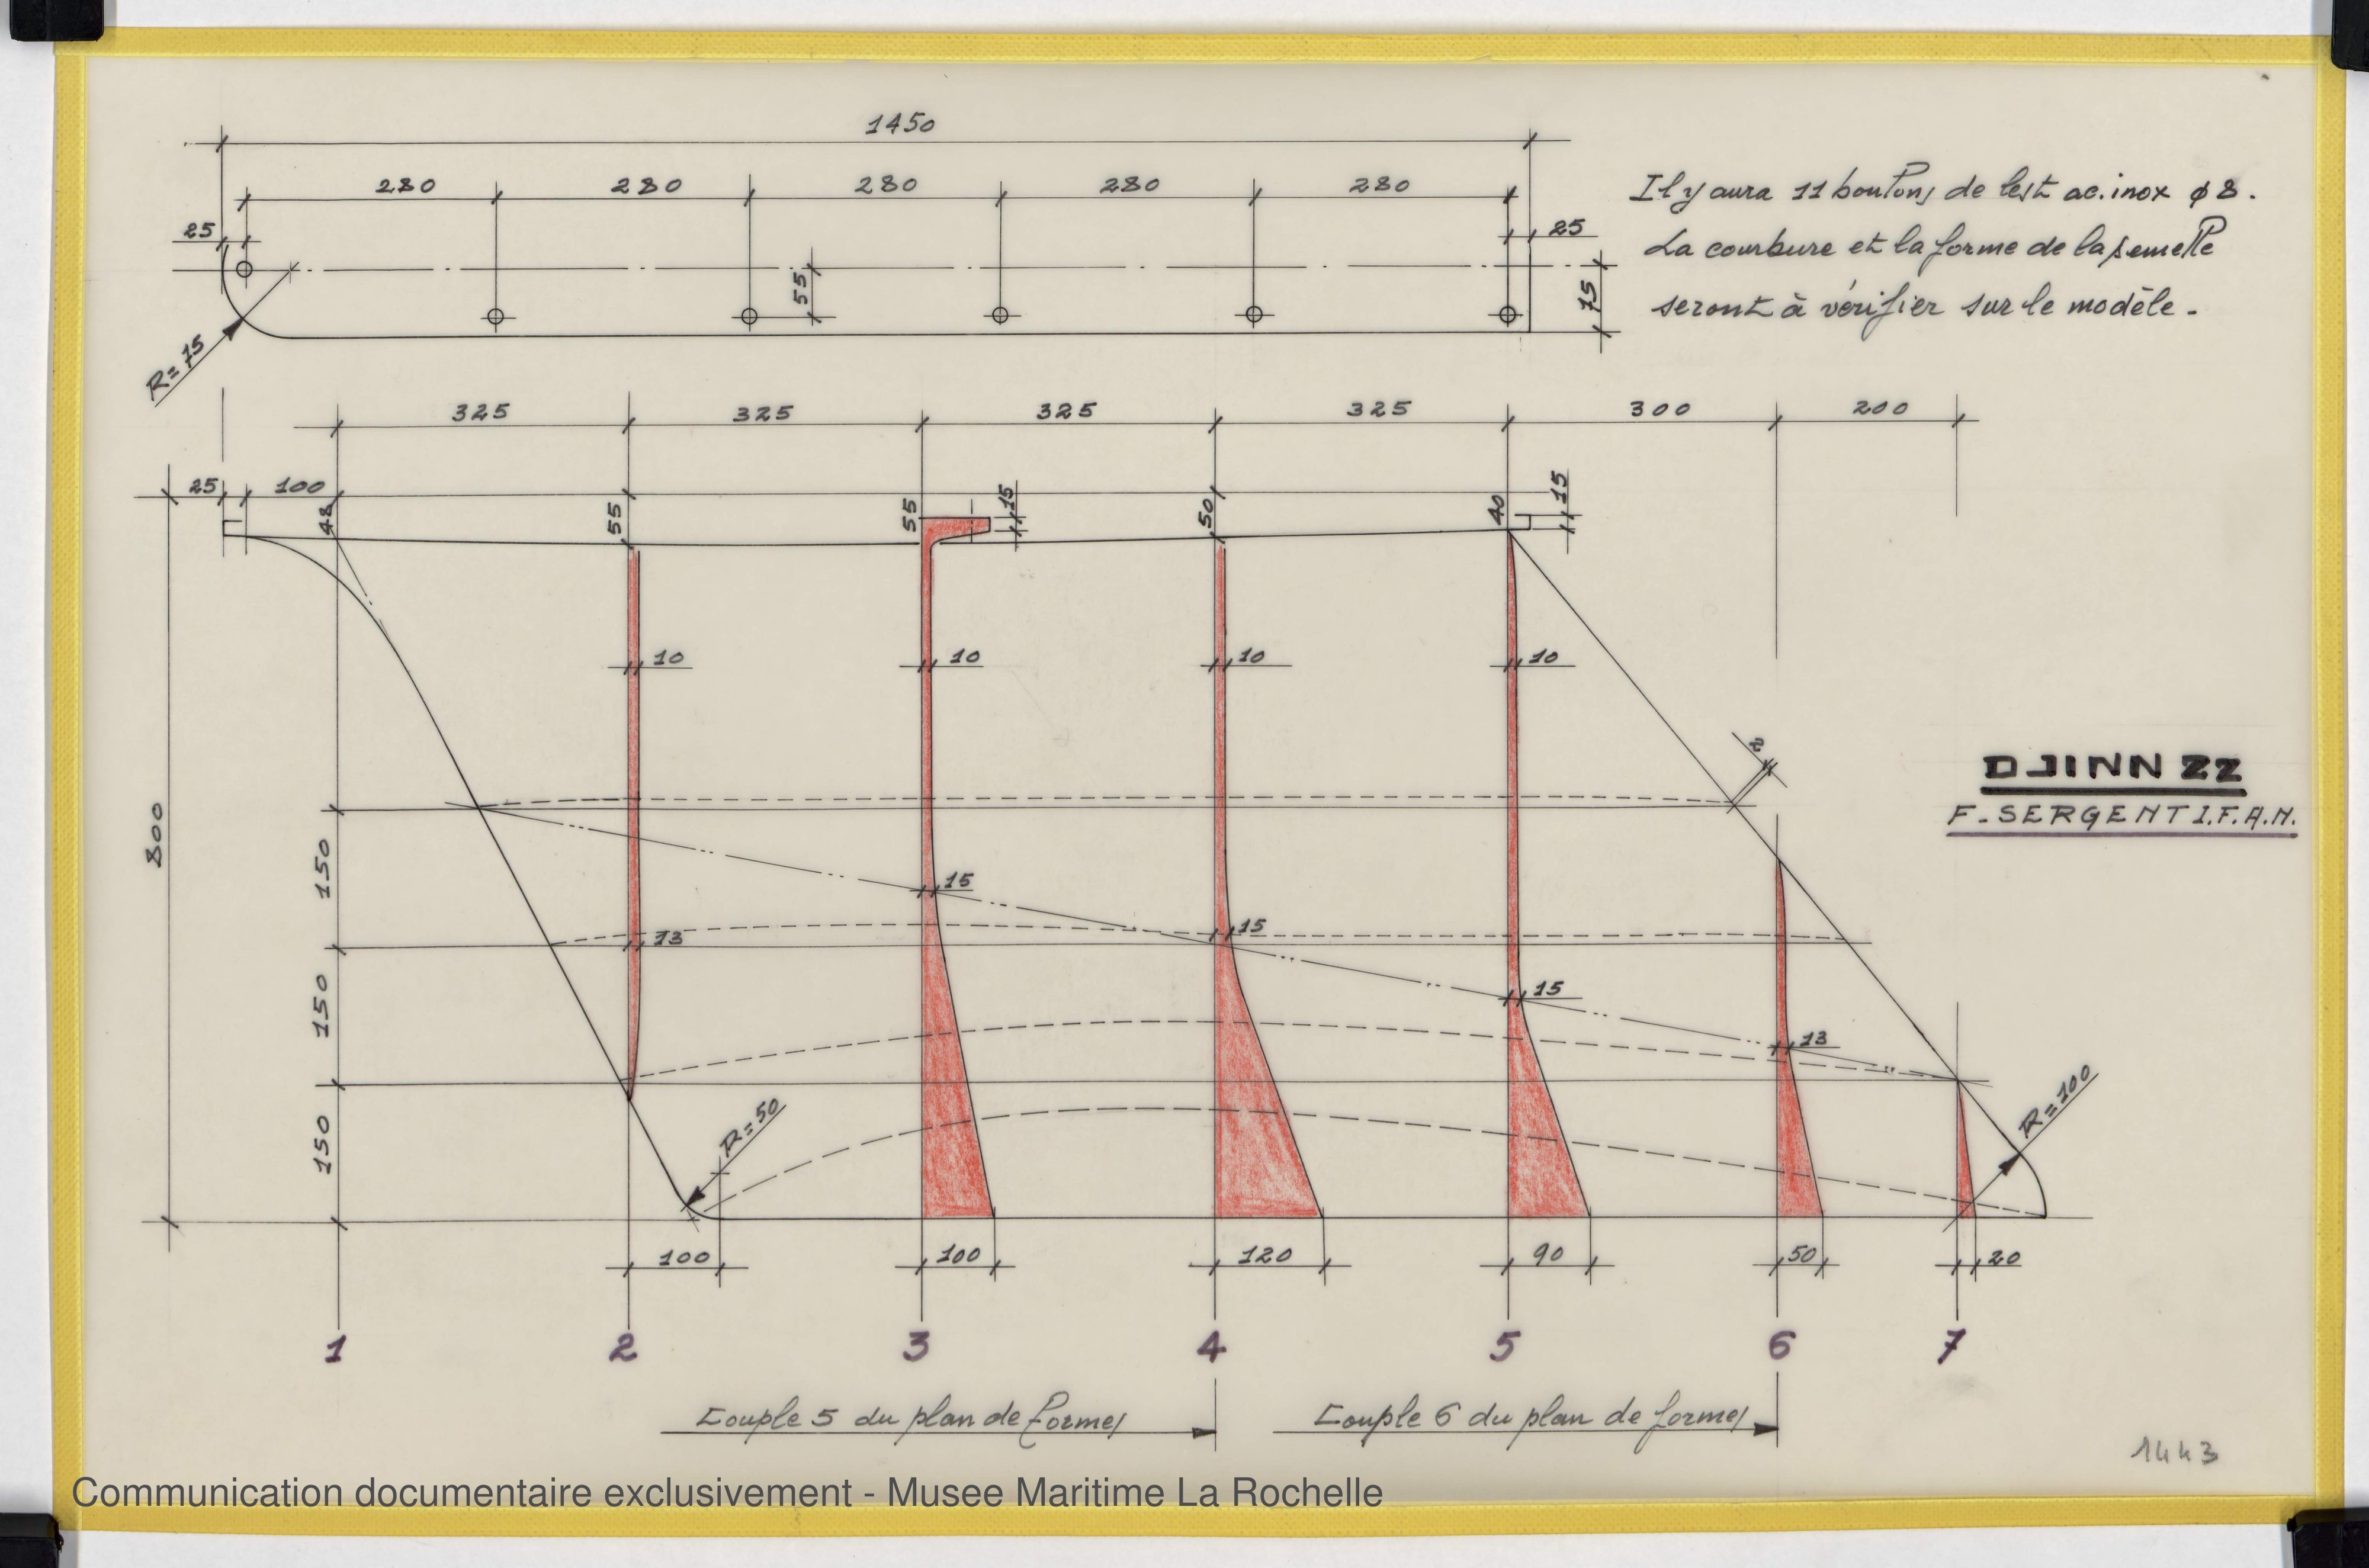 1450
280 280 280 280 280
25 25
55
75
R=75
Il y aura 11 boulons de lest ac. inox φ 8.
La courbure et la forme de la semelle
seront à vérifier sur le modèle.
325 325 325 325 300 200
25 100
48 55 55 15 50 40 15
10 10 10 10
2
DJINN 22
F. SERGENT I.F.A.N.
800
150
15
13 15
150
15
13
150
R=50
R=100
100 100 120 90 50 20
1 2 3 4 5 6 7
Couple 5 du plan de formes
Couple 6 du plan de formes
1443
Communication documentaire exclusivement - Musee Maritime La Rochelle